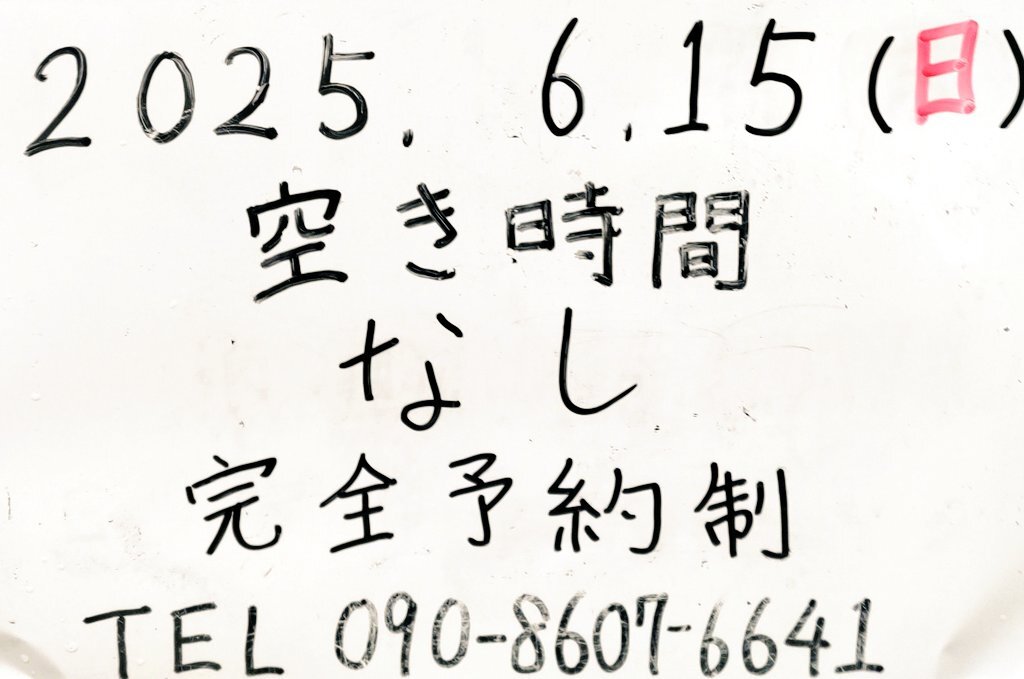 2025. 6.15(日)
空き時間
なし
完全予約制
TEL 090-8607-6641